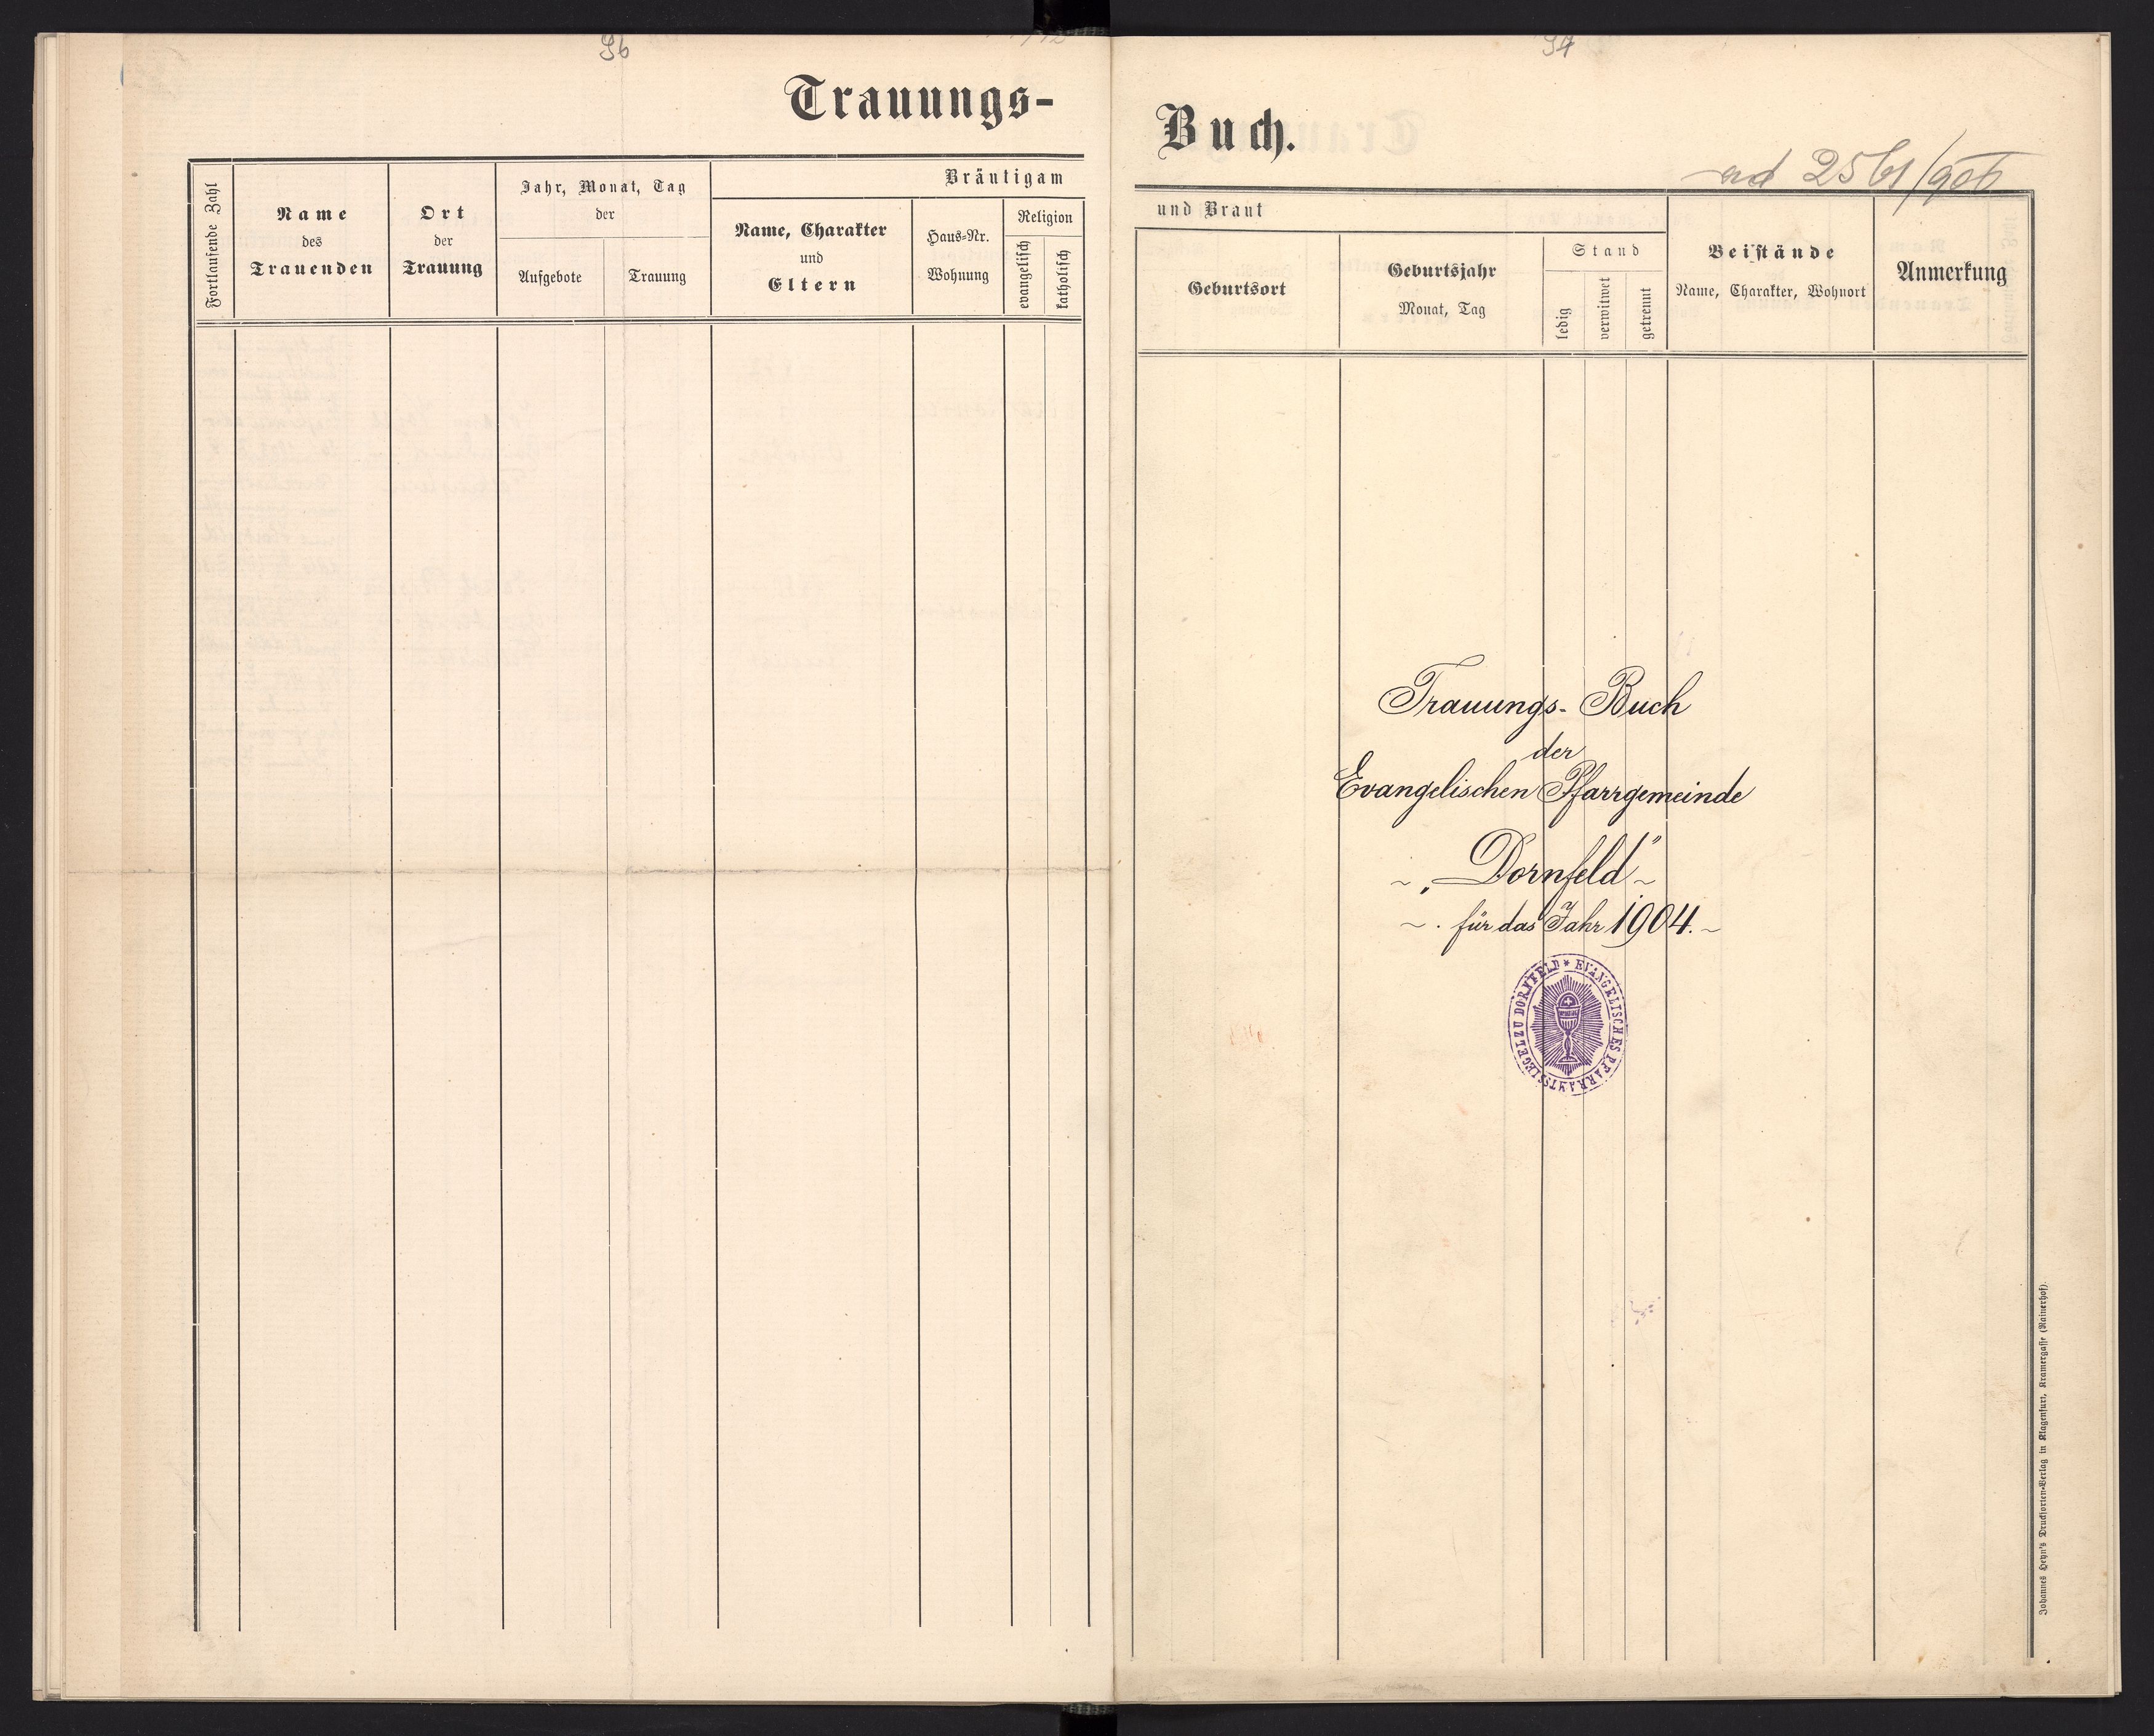 96
Trauungs-
Fortlaufende Zahl
Name
des
Trauenden
Ort
der
Trauung
Jahr, Monat, Tag
der
Aufgebote
Trauung
Bräutigam
Name, Charakter
und
Eltern
Haus-Nr.
Wohnung
Religion
evangelisch
katholisch
97
Buch.
ad 2561/906
und Braut
Geburtsort
Geburtsjahr
Monat, Tag
Stand
ledig
verwitwet
getrennt
Beistände
Name, Charakter, Wohnort
Anmerkung
Trauungs-Buch
der
Evangelischen Pfarrgemeinde
~ „Dornfeld" ~
~ . für das Jahr 1904. ~
EVANGELISCHES PFARRAMTSSIEGEL ZU DORNFELD *
Johannes Heyn's Drucksorten-Verlag in Klagenfurt, Kramergasse (Rainerhof).